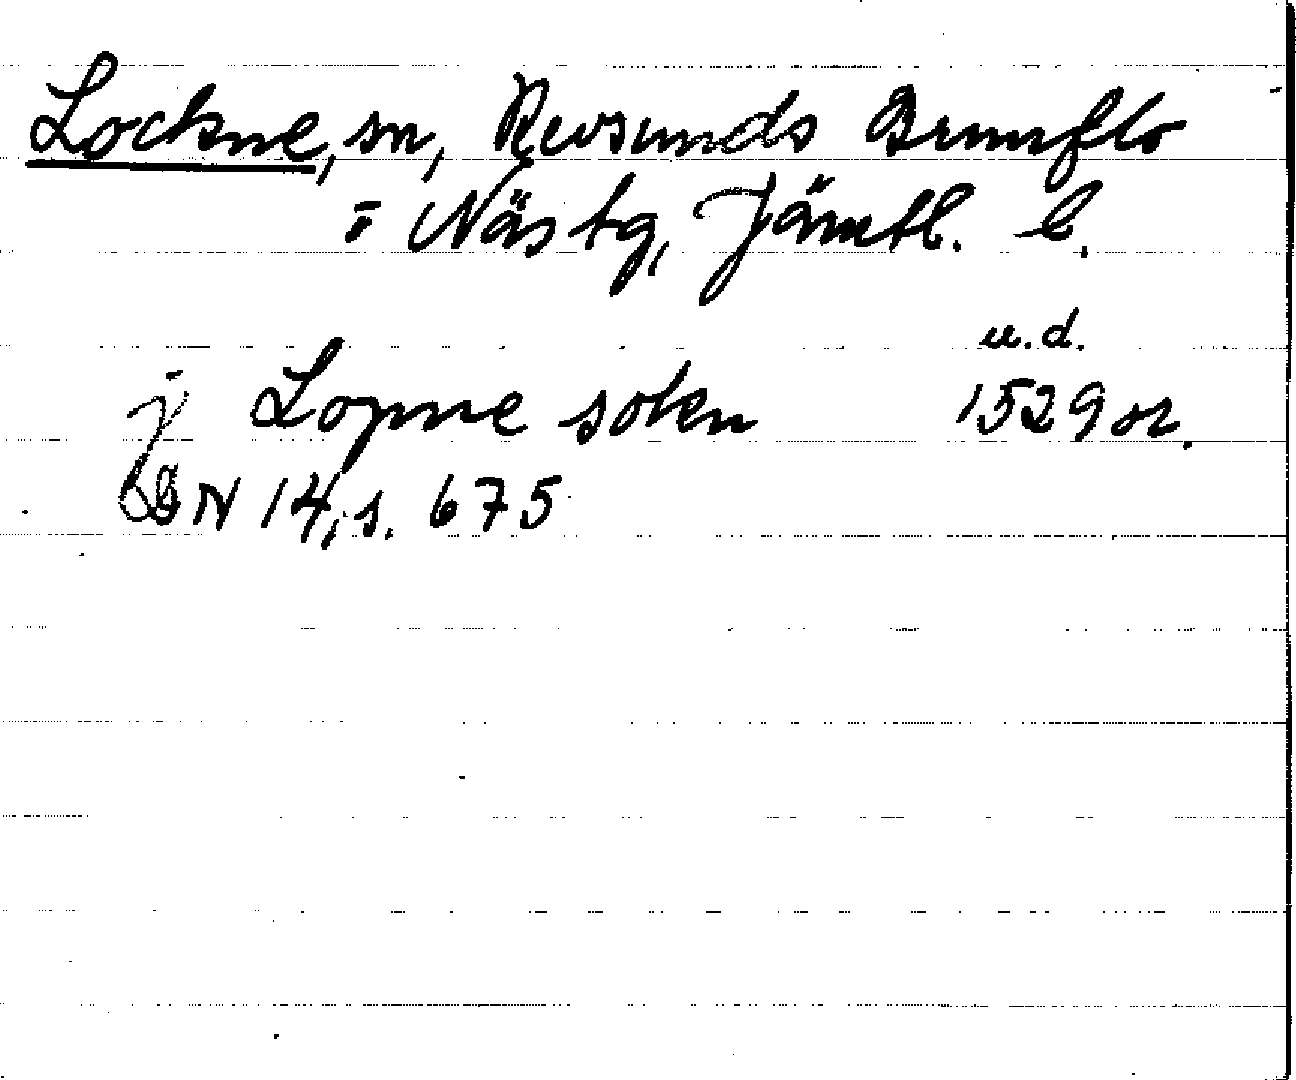 Lockne, sn, Revsunds Brunflo
o Näs tg, Jämtl. l.
u.d.
j Lopne soken 1529 or.
DN 14, s. 675